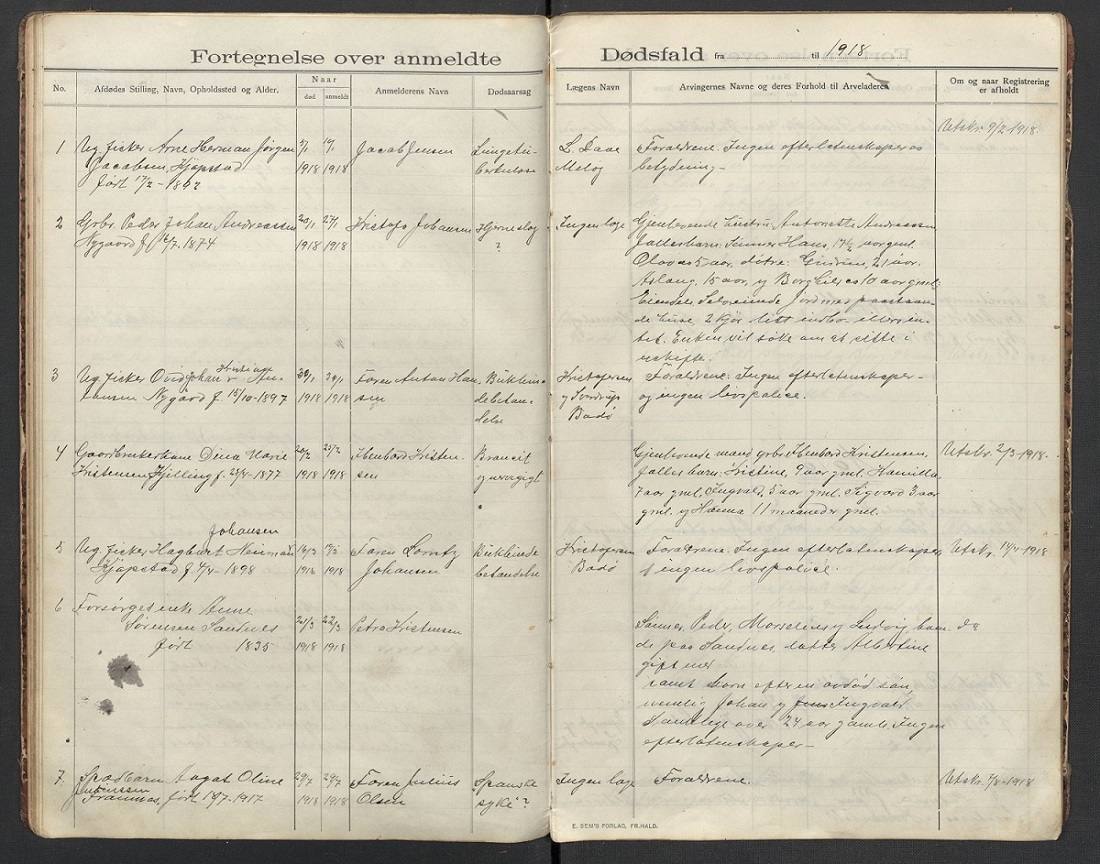 Fortegnelse over anmeldte
Dødsfald fra til 1918
No.
Afdødes Stilling, Navn, Opholdssted og Alder.
Naar
død
anmeldt
Anmelderens Navn
Dødsaarsag
Lægens Navn
Arvingernes Navne og deres Forhold til Arveladeren
Om og naar Registrering
er afholdt
Utskr. 9/2 1918.
1 Ug. fisker Arne Herman Jørgen
Jacobsen, Kjøpstad
født 17/2 - 1892
1918 1918
Jacob Jensen
Lungetu-
berkulose
L. Daae
Meløg
Forældrene. Ingen efterlatenskaper av
betydning -
2 Grbr. Peder Johan Andreassen
Nygaard f. 16/7. 1874
20/1 27/1
1918 1918
Kristofa Johansen
Hjerneslag
?
Ingen læge
Gjenlevende hustru Antonette Andreassen
fællesbarn: Sønner Hans, 17½ aar gml.
Olav 5 aar, døtre: 21 aar.
Aslaug, 15 aar, og Borghild 10 aar gml.
Eiendele: Selveiende jord med paastaaen-
de huse, 2 kjør litt indbo ellers in-
tet. Enken vil søke om at sitte i
uskifte.
3 Ug. fisker Johan Kristian An-
tonsen Nygård f. 15/10 - 1897
1918 1918
Faren Anton Han-
sen
Bukhin-
debetæn-
delse
Kristofersen
og
Bodø
Forældrene. Ingen efterlatenskaper -
og ingen livspolice.
4 Gaardbrukerkone Dina Marie
Kristensen, Kjelling f. 1877
20/2 25/2
1918 1918
Edenhard Kristen-
sen
Brancit
og
Gjenlevende mand grbr. Edenhard Kristensen,
fælles barn: Kristine, 9 aar gml. Kamilla
7 aar gml. Ingvald, 5 aar gml. Sigvard 3 aar
gml. og Hanna 11 maaneder gml.
Utskr. 2/3 - 1918 -
5 Ug. fisker Hagbart Heiman Johansen
Kjøpstad f. 4/4 - 1898
1918 1918
Faren Lorntz
Johansen
Bukhinde
betændelse
Kristofersen
Bodø
Forældrene. Ingen efterlatenskaper
og ingen livspolice.
Utskr. 1918
6 Forsørgedes enke Anne
Sørensen Sandnes
født 1835
20/3 22/3
1918 1918
Petra Kristensen
Sønner: Peder, Morselius og Ludvig bæn-
de paa Sandnes, datter Albertine
gift med
samt børn efter en avdød søn,
nemlig Johan og Jens Ingvald.
Samtlige over 24 aar gamle. Ingen
efterlatenskaper -
do
7. Spædbarn Aagot Oline
Juliussen
født 1917
1918 1918
Faren Julius
Olsen
Spanske
syke?
Ingen læge
Forældrene.
Utskr. 7/8 - 1918
E. SEM'S FORLAG, FR.HALD.